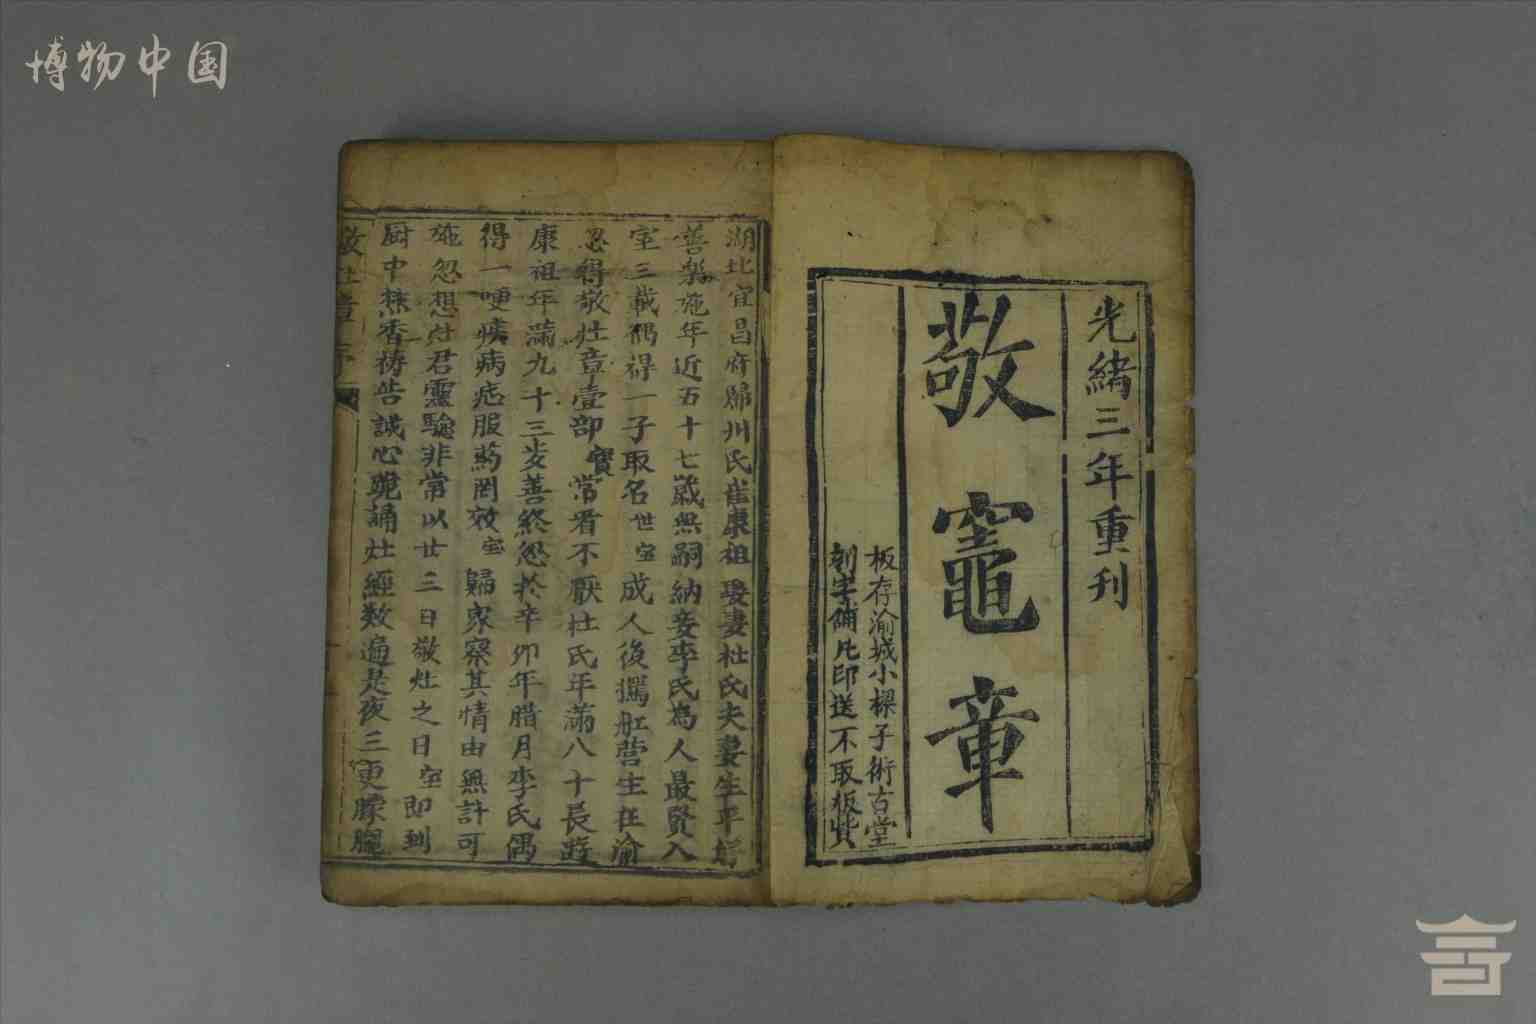 博物中国
光緒三年重刊
敬竈章
板存渝城小樑子術古堂
刻字鋪凡印送不取板貲
湖北宜昌府歸州民崔康祖娶妻杜氏夫妻生平好
善樂施年近五十七歲無嗣納妾李氏為人最賢入
室三載偶得一子取名世宝成人後攜舡營生在渝
忽得敬灶章壹部寳常看不厭杜氏年滿八十長遊
康祖年滿九十三岁善終忽於辛卯年腊月李氏偶
得一哽疾病危服葯罔效宝歸家察其情由無計可
施忽想灶君靈驗非常以廿三日敬灶之日宝即到
厨中焚香禱告誠心跪誦灶經数遍是夜三更朦朧
敬灶章